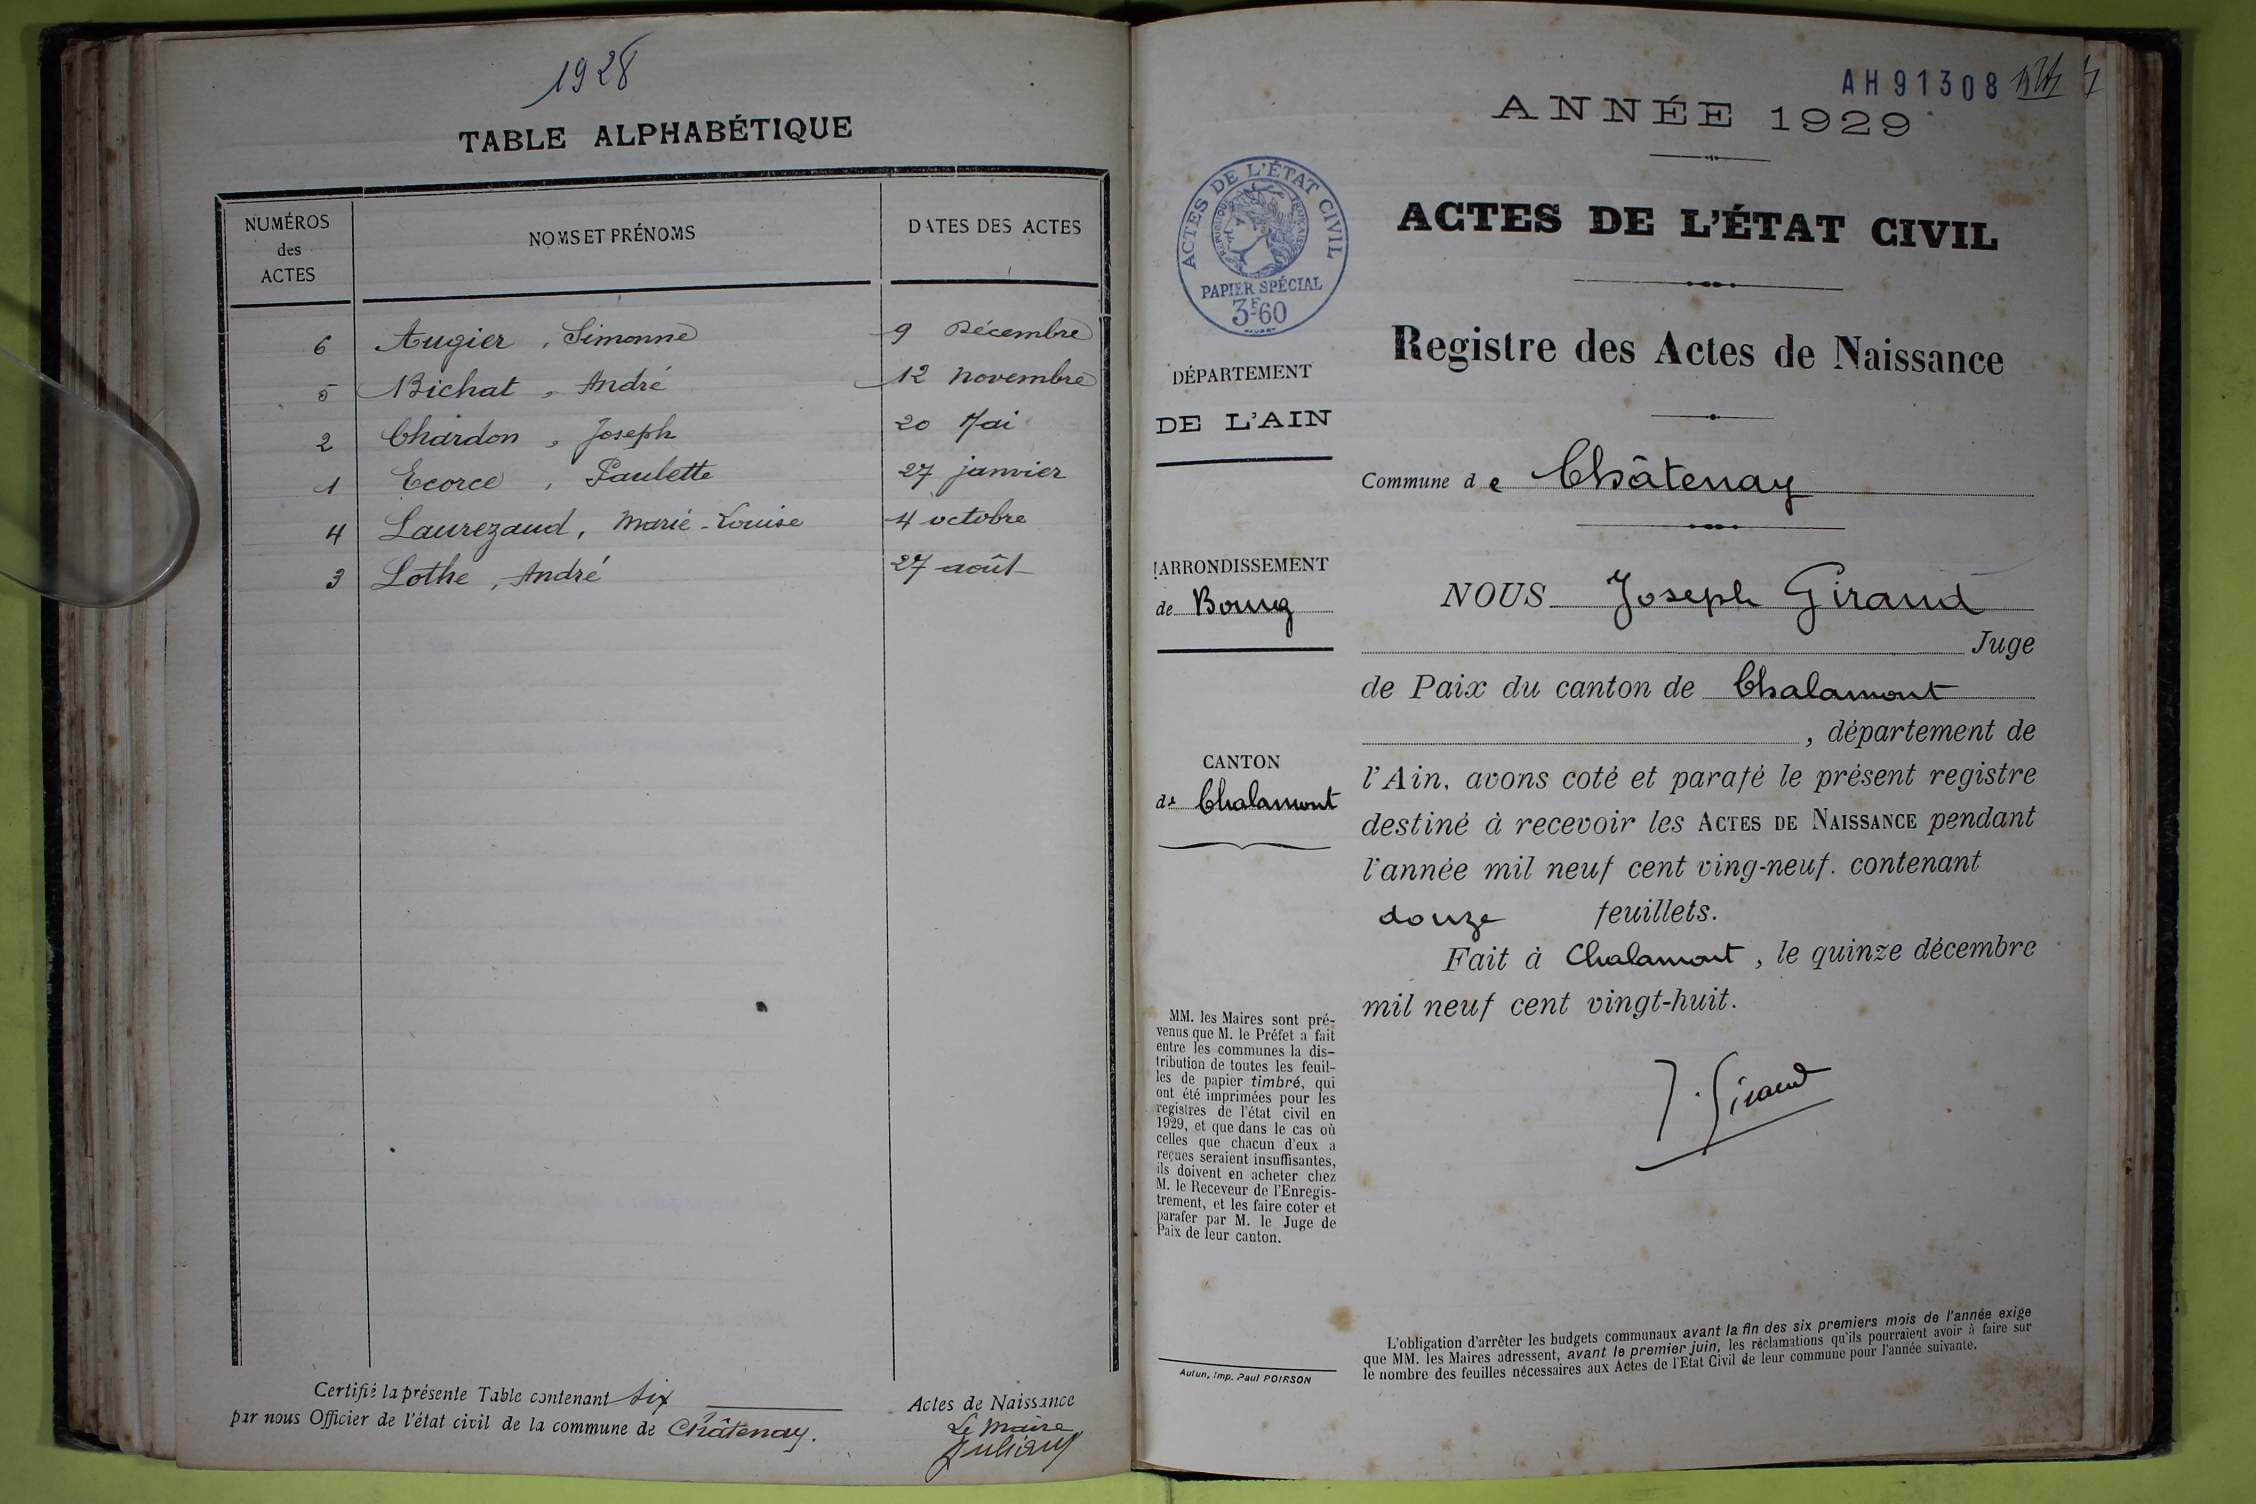 1928
TABLE ALPHABÉTIQUE
NUMÉROS
des
ACTES
NOMS ET PRÉNOMS
DATES DES ACTES
6 Augier, Simonne 9 Décembre
5 Bichat, André 12 novembre
2 Chardon, Joseph 20 Mai
1 Ecorce, Paulette 27 janvier
4 Laurezaud, Marie-Louise 4 octobre
3 Lothe, André 27 août
Certifié la présente Table contenant six Actes de Naissance
par nous Officier de l'état civil de la commune de Châtenay.
Le Maire
AH91308
ANNÉE 1929
ACTES DE L'ÉTAT CIVIL
RÉPUBLIQUE FRANÇAISE
PAPIER SPÉCIAL
3F60
ACTES DE L'ÉTAT CIVIL
Registre des Actes de Naissance
DÉPARTEMENT
DE L'AIN
Commune de Châtenay
ARRONDISSEMENT
de Bourg
NOUS Joseph Giraud
Juge
de Paix du canton de Chalamont
, département de
CANTON
de Chalamont
l'Ain, avons coté et parafé le présent registre
destiné à recevoir les ACTES DE NAISSANCE pendant
l'année mil neuf cent ving-neuf. contenant
douze feuillets.
Fait à Chalamont, le quinze décembre
mil neuf cent vingt-huit.
J. Giraud
MM. les Maires sont pré-
venus que M. le Préfet a fait
entre les communes la dis-
tribution de toutes les feuil-
les de papier timbré, qui
ont été imprimées pour les
registres de l'état civil en
1929, et que dans le cas où
celles que chacun d'eux a
reçues seraient insuffisantes,
ils doivent en acheter chez
M. le Receveur de l'Enregis-
trement, et les faire coter et
parafer par M. le Juge de
Paix de leur canton.
Autun, Imp. Paul POIRSON
L'obligation d'arrêter les budgets communaux avant la fin des six premiers mois de l'année exige
que MM. les Maires adressent, avant le premier juin, les réclamations qu'ils pourraient avoir à faire sur
le nombre des feuilles nécessaires aux Actes de l'Etat Civil de leur commune pour l'année suivante.